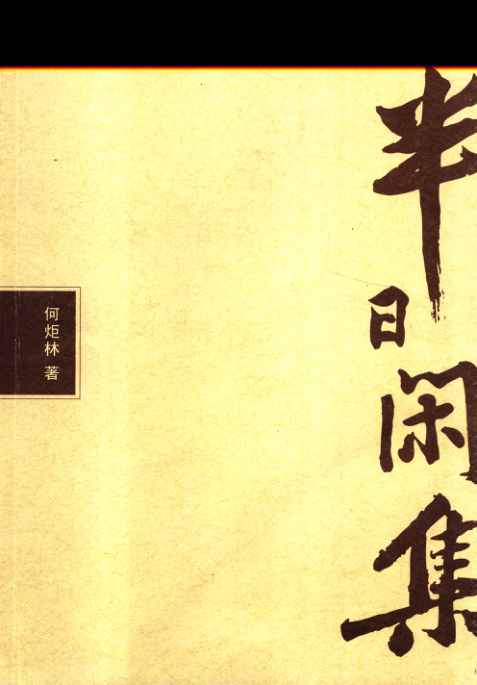 半日闲集
何炬林 著